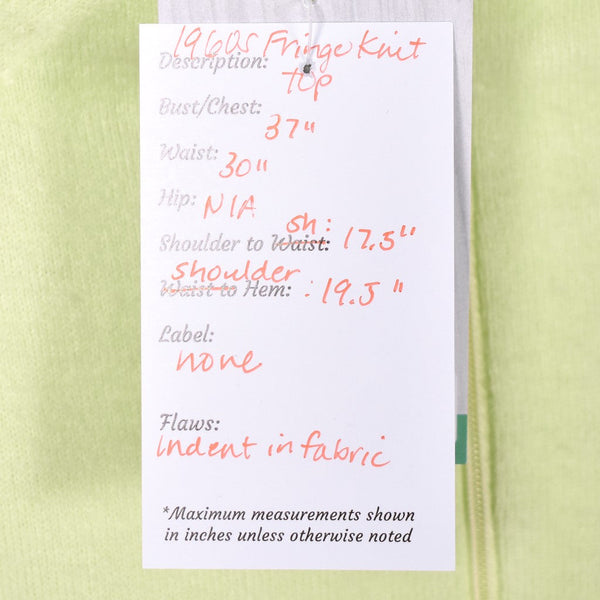 1960s Fringe Knit
Description: top
Bust/Chest: 37"
Waist: 30"
Hip: N/A
Shoulder to Waist: sh: 17.5"
shoulder
Waist to Hem: : 19.5"
Label:
none
Flaws:
Indent in fabric
*Maximum measurements shown
in inches unless otherwise noted